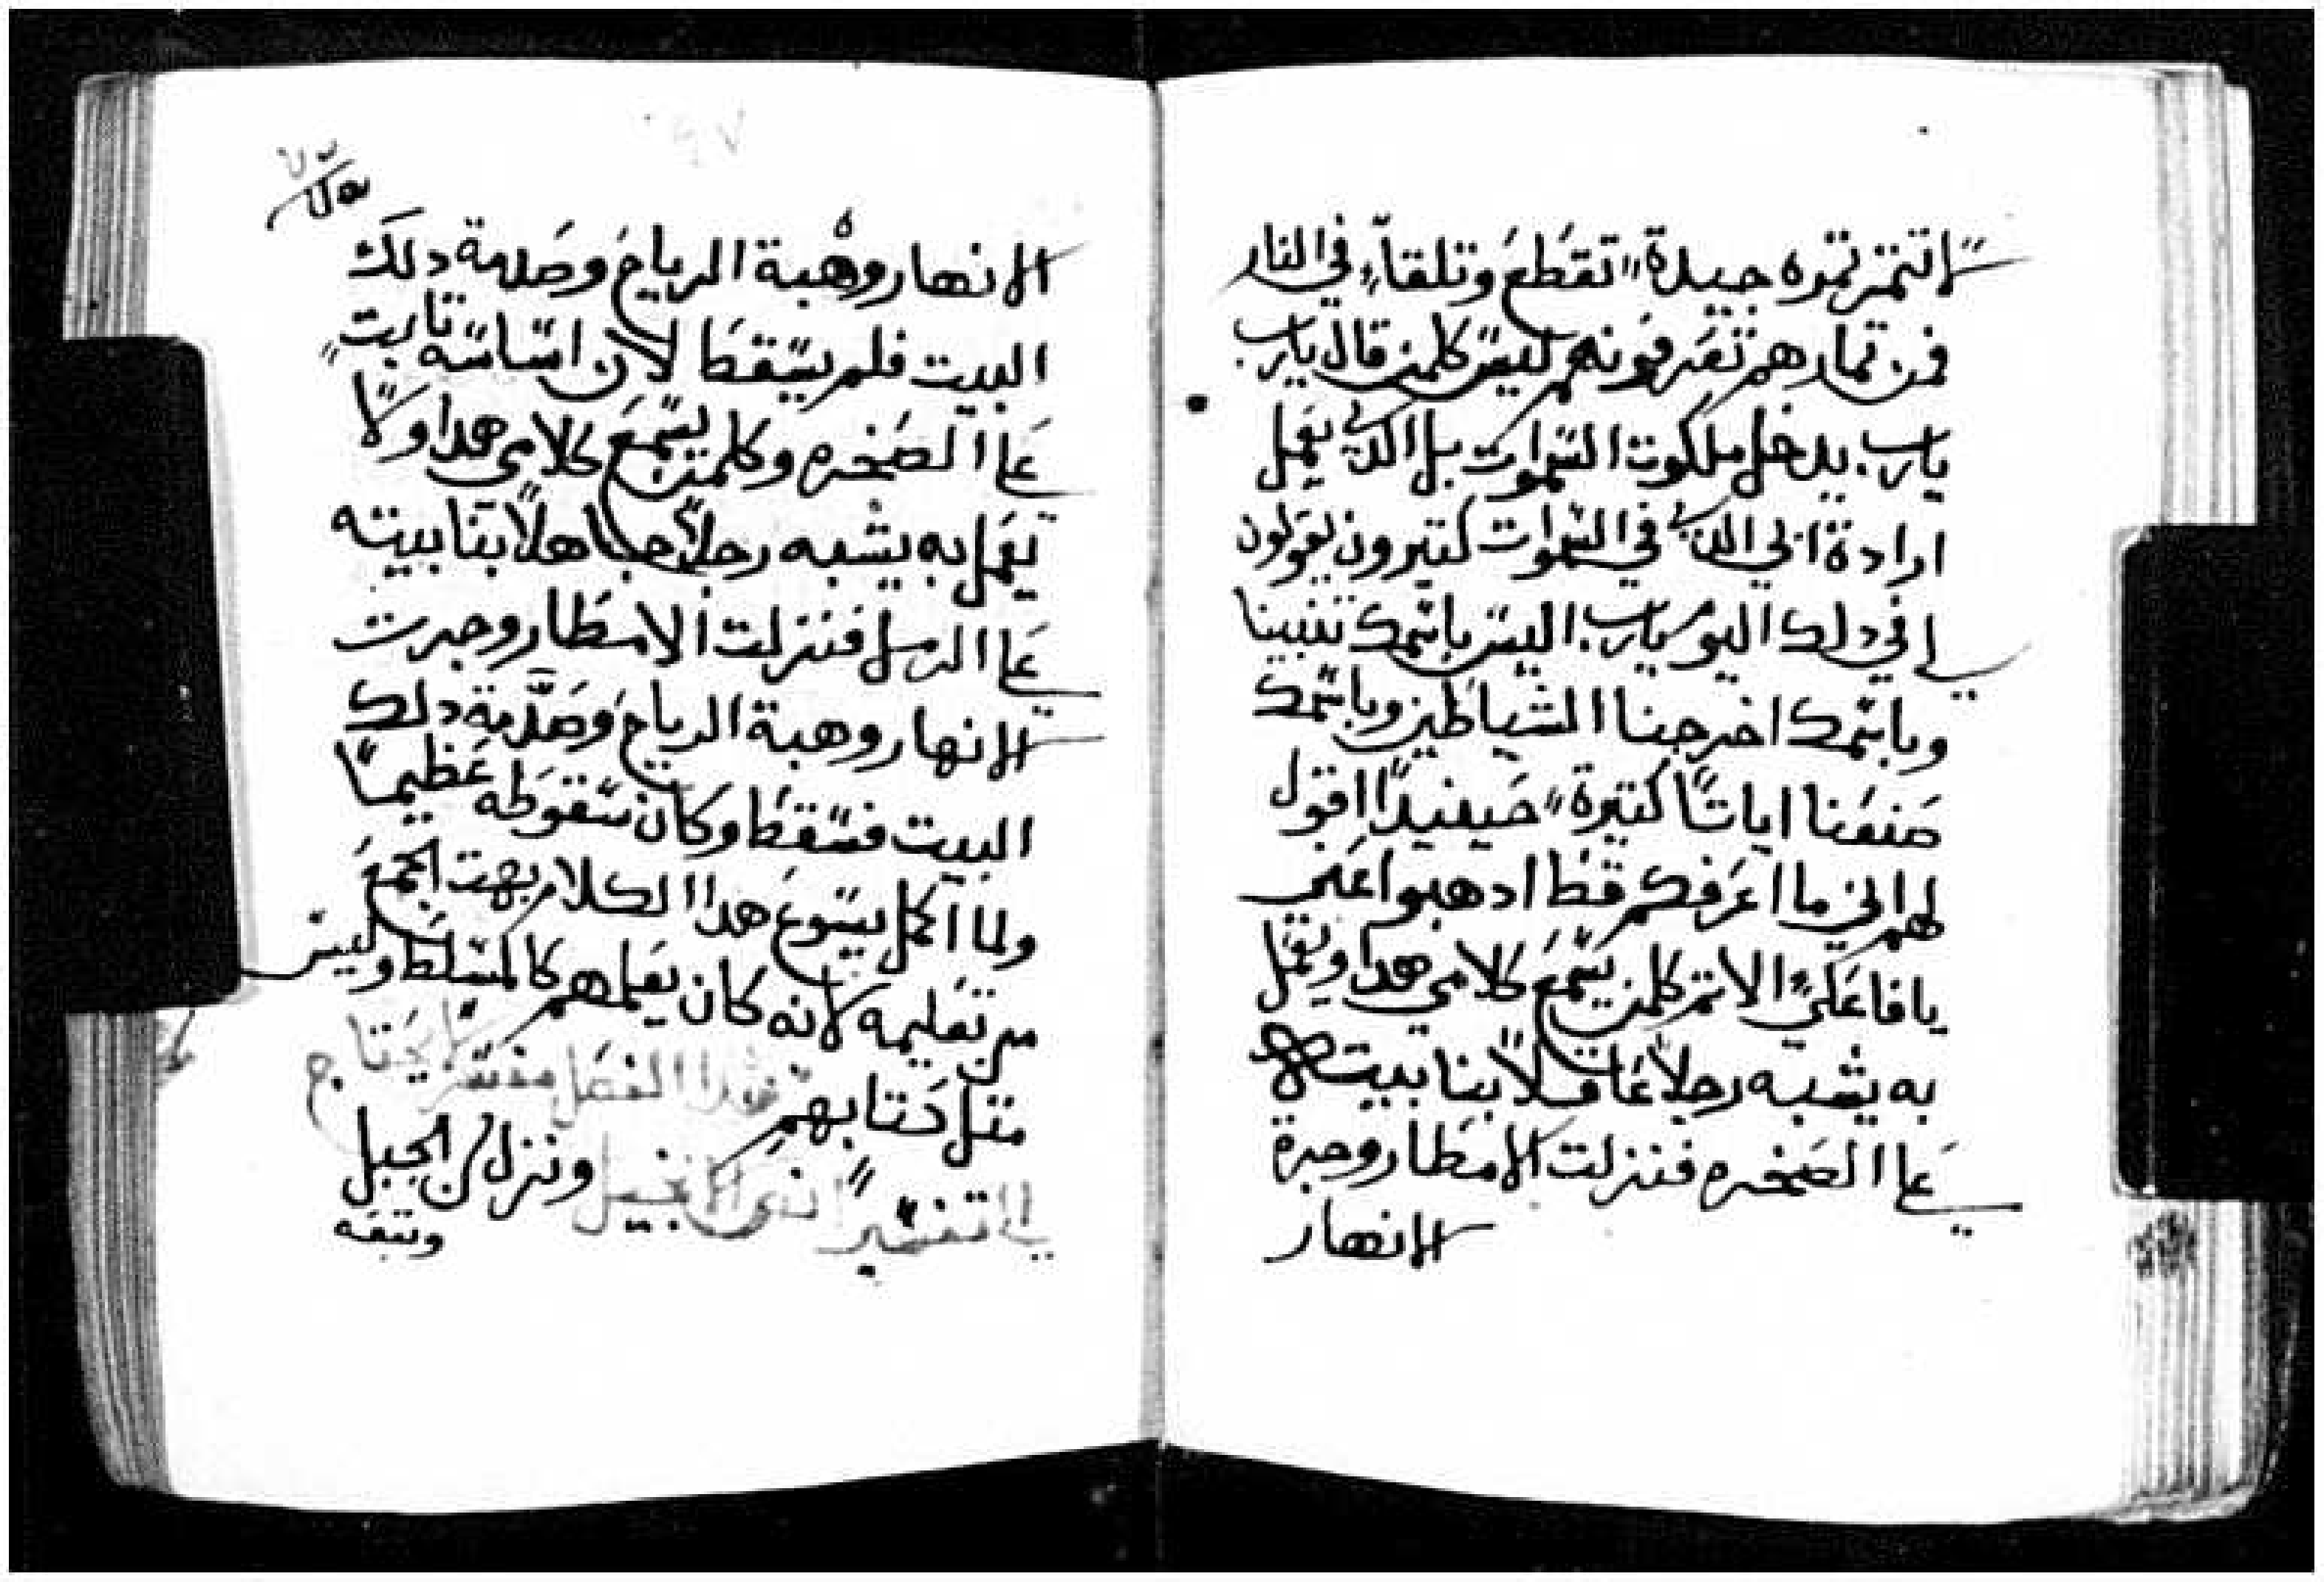 لا تتمر تمره جيدة تقطع وتلقا في النار
فمن تمارهم تعرفونهم ليس كلمن قال يارب
يارب يدخل ملكوت السموات بل الدي يعمل
ارادة ابي الدي في السموات كتيرون يقولون
لي في دلك اليوم يارب اليس باسمك تنبينا
وباسمك اخرجنا الشياطين وباسمك
صنعنا اياتا كتيرة حينيدا اقول
لهم اني ما اعرفكم قط ادهبوا عني
يافاعلي الاتم كلمن يسمع كلامي هدا ويعمل
به يشبه رجلا عاقلا بنا بيته
علي الصخره فنزلت الامطار وجرة
الانهار
الانهار وهبة الرياح وصدمة دلك
البيت فلم يسقط لان اساسه تابت
علي الصخره وكلمن يسمع كلامي هدا ولا
يعمل به يشبه رجلا جاهلا بنا بيته
علي الرمل فنزلت الامطار وجرت
الانهار وهبة الرياح وصدمة دلك
البيت فسقط وكان سقوطه عظيما
ولما اكمل يسوع هدا الكلام بهت الجمع
من تعليمه لانه كان يعلمهم كالمسلط وليس
متل كتابهم هدا الفصل مفسر لا يحتاج
الي تفسيرا الانجيل ونزل من الجبل
وتبعه